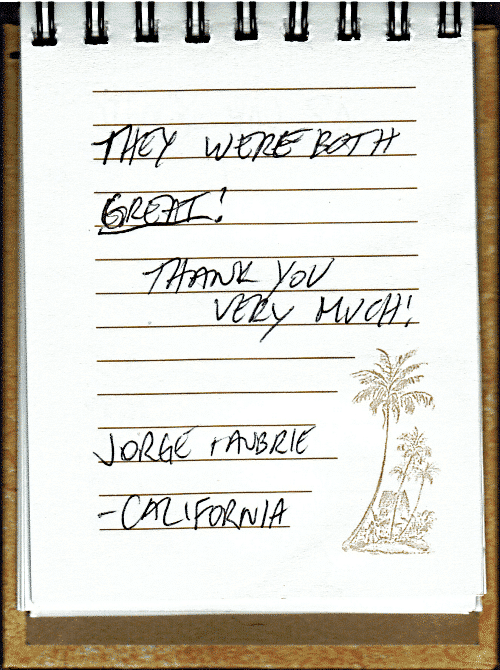 THEY WERE BOTH
GREAT!
THANK YOU
VERY MUCH!
JORGE + AUBRIE
-CALIFORNIA